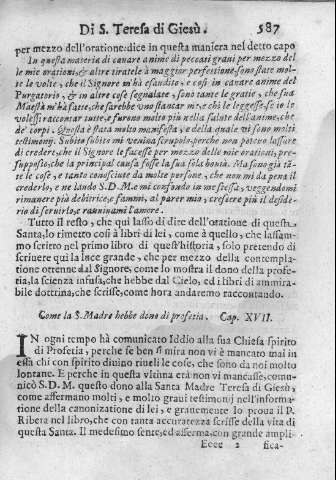 Di S. Teresa di Giesù. 587
per mezzo dell'oratione: dice in questa maniera nel detto capo
In questa materia di cauare anime di peccati graui per mezzo del
le mie orationi, & altre tiratele à maggior perfettione sono state mol-
te le volte, che il Signore m'hà esaudito, e così in cauare anime del
Purgatorio, & in altre cose segnalate, sono tante le gratie, che sua
Maestà m'hà fatte, che sarebbe vno stancar mè, e chi le leggesse, se io lo
volessi raccontar tutte, e furono molto più nella salute dell'anime, che
de' corpi. Questa è stata molto manifesta, e della quale vi sono molti
testimonij. Subito subito mi veniua scrupolo, perche non poteuo lasciare
di credere, che il Signore lo facesse per mezzo delle mie orationi, pre-
supposto, che la principal causa fosse la sola sua bontà. Ma sono già tã-
te le cose, e tanto conosciute da molte persone, che non mi dà pena il
crederlo, e ne laudo S. D. M. e mi confondo in me stessa, veggendomi
rimanere più debitrice, e fammi, al parer mio, crescere più il deside-
rio di seruirlo, e rauuiuami l'amore.
Tutto il resto, che quì lasso di dire dell'oratione di questa
Santa, lo rimetto così à i libri di lei, come à quello, che lassam-
mo scritto nel primo libro di quest'historia, solo pretendo di
scriuere quì la luce grande, che per mezzo della contempla-
tione ottenne dal Signore, come lo mostra il dono della profe-
tia, la scienza infusa, che hebbe dal Cielo, ed i libri di ammira-
bile dottrina, che scrisse, come hora andaremo raccontando.
Come la S. Madre hebbe dono di profetia. Cap. XVII.
IN ogni tempo hà comunicato Iddio alla sua Chiesa spirito
di Profetia, perche se ben si mira non vi è mancato mai in
essa chi con spirito diuino riueli le cose, che sono da noi molto
lontane. E perche in questa vltima età non vi mancasse, comu-
nicò S. D. M. questo dono alla Santa Madre Teresa di Giesù,
come affermano molti, e molto graui testimonij nell'informa-
tione della canonizatione di lei, e grauemente lo proua il P.
Ribera nel libro, che con tanta accuratezza scrisse della vita di
questa Santa. Il medesimo sente, ed afferma, con grande ampli-
Eeee 2 fica-